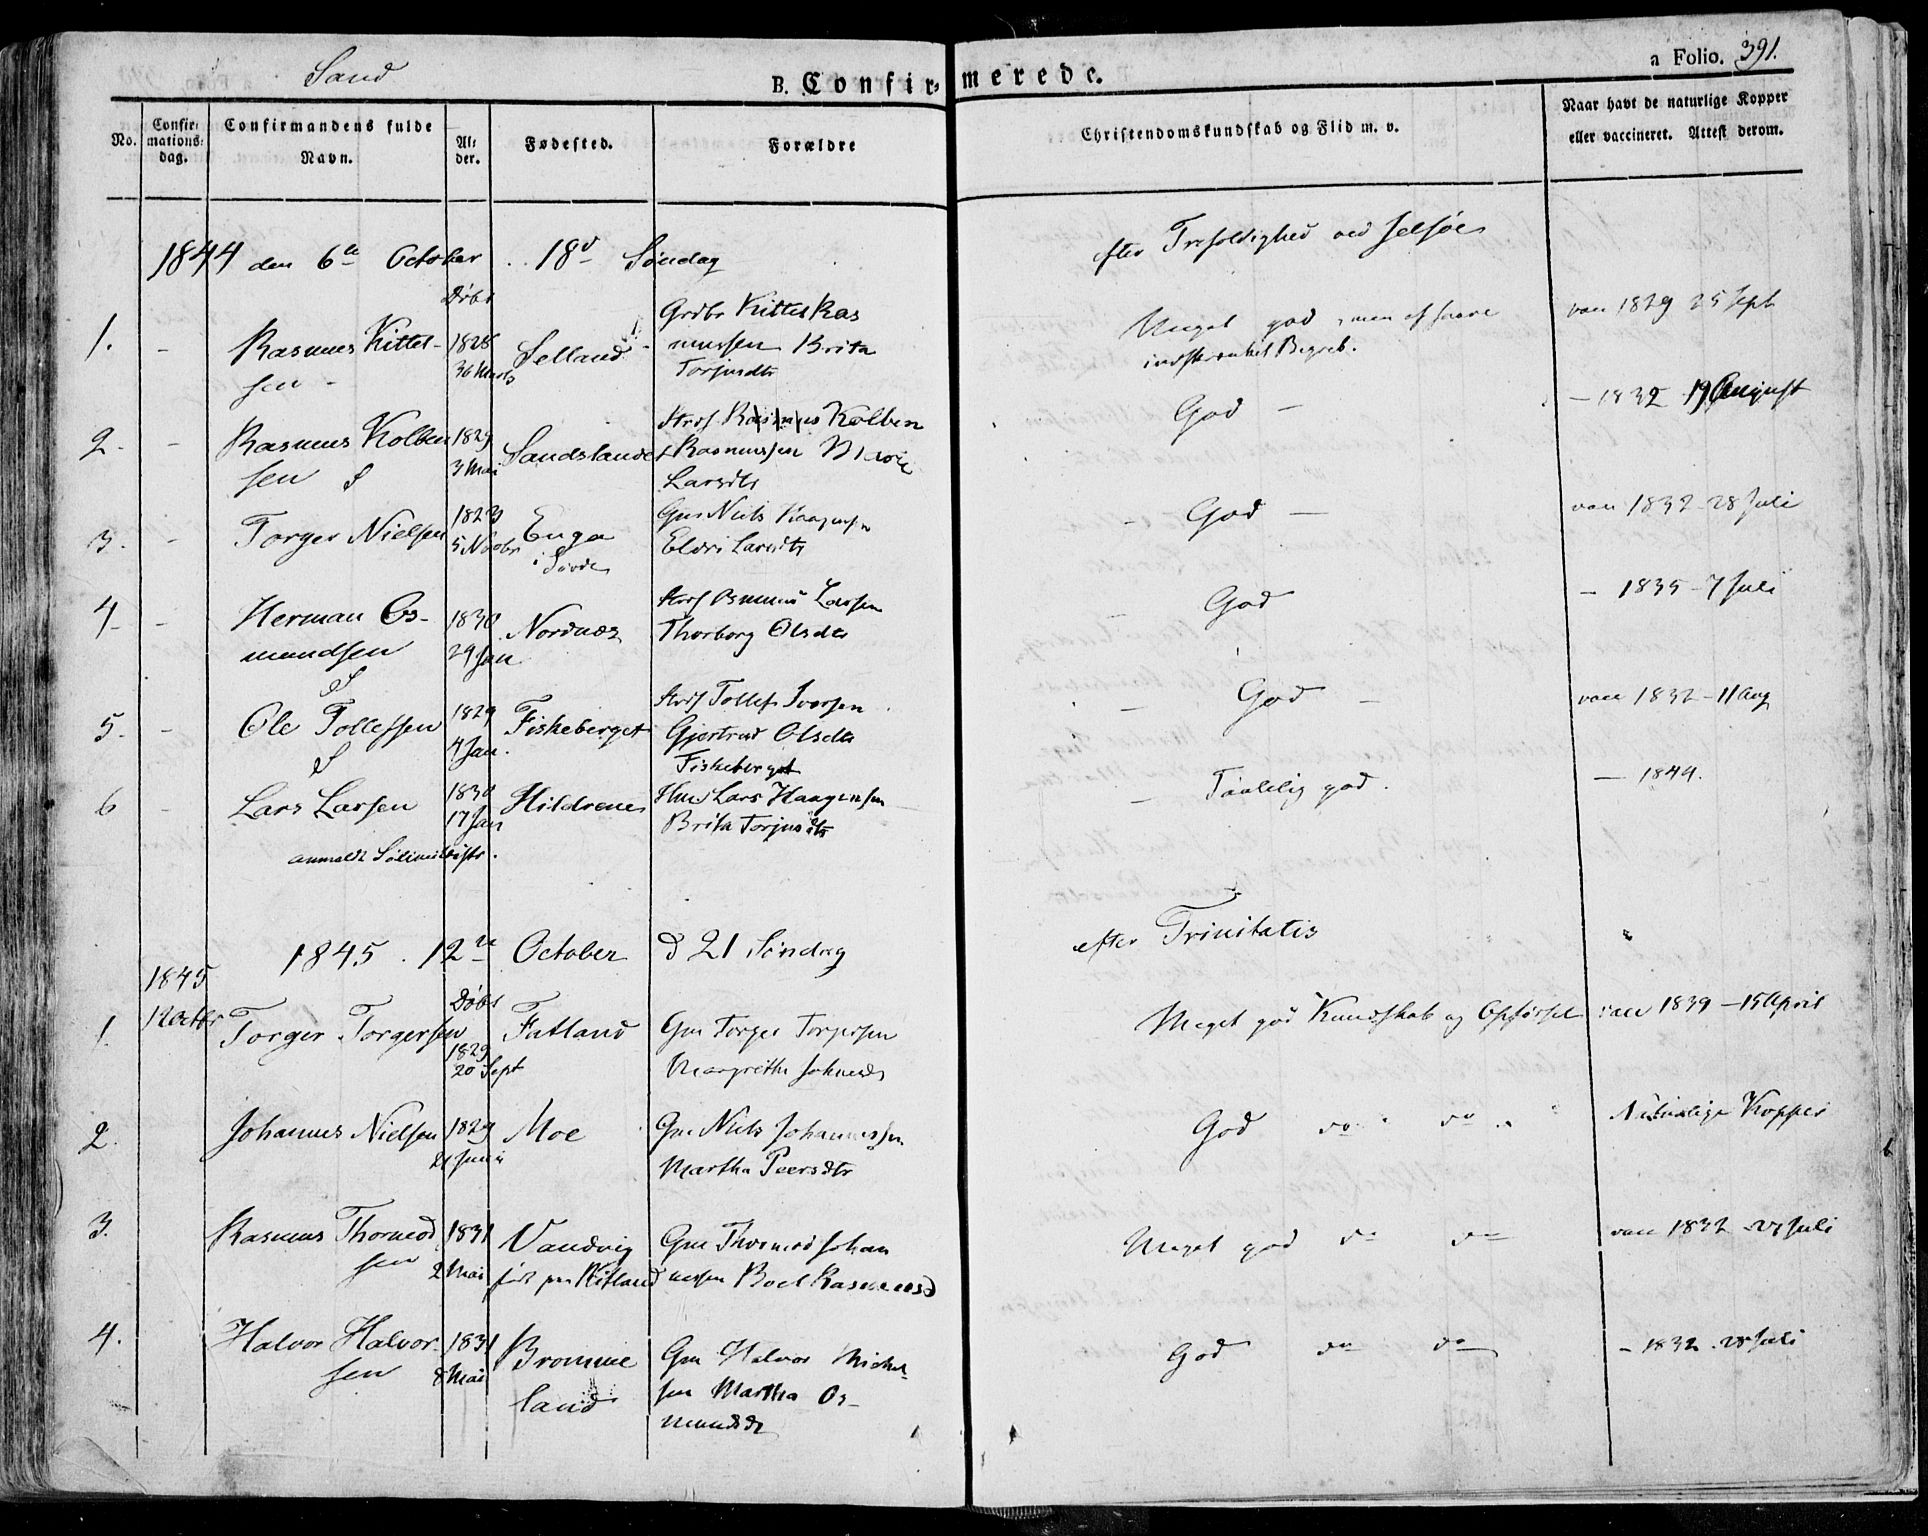 Sand
B. Confirmerede.
a Folio. 391.
No. Confirmationsdag. Confirmandens fulde Navn. Alder. Fødested. Forældre Christendomskundskab og Flid m. v. Naar havt de naturlige Kopper eller vaccineret. Attest derom.
1844 den 6te October 18d Søndag efter Trefoldighed ved
Døbt
1. - Rasmus Kittel- 1828 Selland Grdbr Kittel Ras Meget god, men af saare vac 1829 25 Sept
sen - Marts mussen Brita indskrænket Begreb.
Torjusdtr
2. - Rasmus Kolben 1829 Sandslande Kolben God - - 1832 19 August
sen 3 Mai Rasmussen Marie
Larsdtr
3. - Torger Nielsen 1829 Enga Gm Niels - God - vac 1832 28 Juli
5 Novbr i Søvde Eldri Larsdtr
4 - - Herman Os- 1830 Nordnæs Larsen - God - 1835 - 7 Juli
mundsen 29 Jan Thorborg Olsdtr
5. - Ole Tollefsen 1829 Fiskeberget Tollef Iversen - God - vac 1832 - 11 Aug
4 Jan. Gjertrud Olsdtr
Fiskeberget
6 - Lars Larsen 1830 Hildrenes Lars Haagensen - Taalelig god. - 1844.
17 Jan Brita Torjusdtr
anmeldt
1845. 12te October d 21 Søndag efter Trinitatis
1845
12 Octbr Døbt
1. Torger Torgersen 1829 Fatland Gm Torger Torgersen Meget god Kundskab og Opførsel vac 1839 - 15 April
20 Sept Margrethe Johnsd
2. Johannes Nielsen 1829 Moe Gm Niels Johannessen God do do Naturlige Kopper
21 Juni Martha Peersdtr
3. Rasmus Thormod 1831 Vandvig Gm Thormod Johan Meget god do do vac 1832 - 27 Juli
sen 2 Mai født paa Ritland nessen Boel Rasmusd
4. Halvor Halvor- 1831 Bromme Gm Halvor Michel- God do do - 1832. 28 Juli
sen 8 Mai land sen Martha Os-
mundsdr